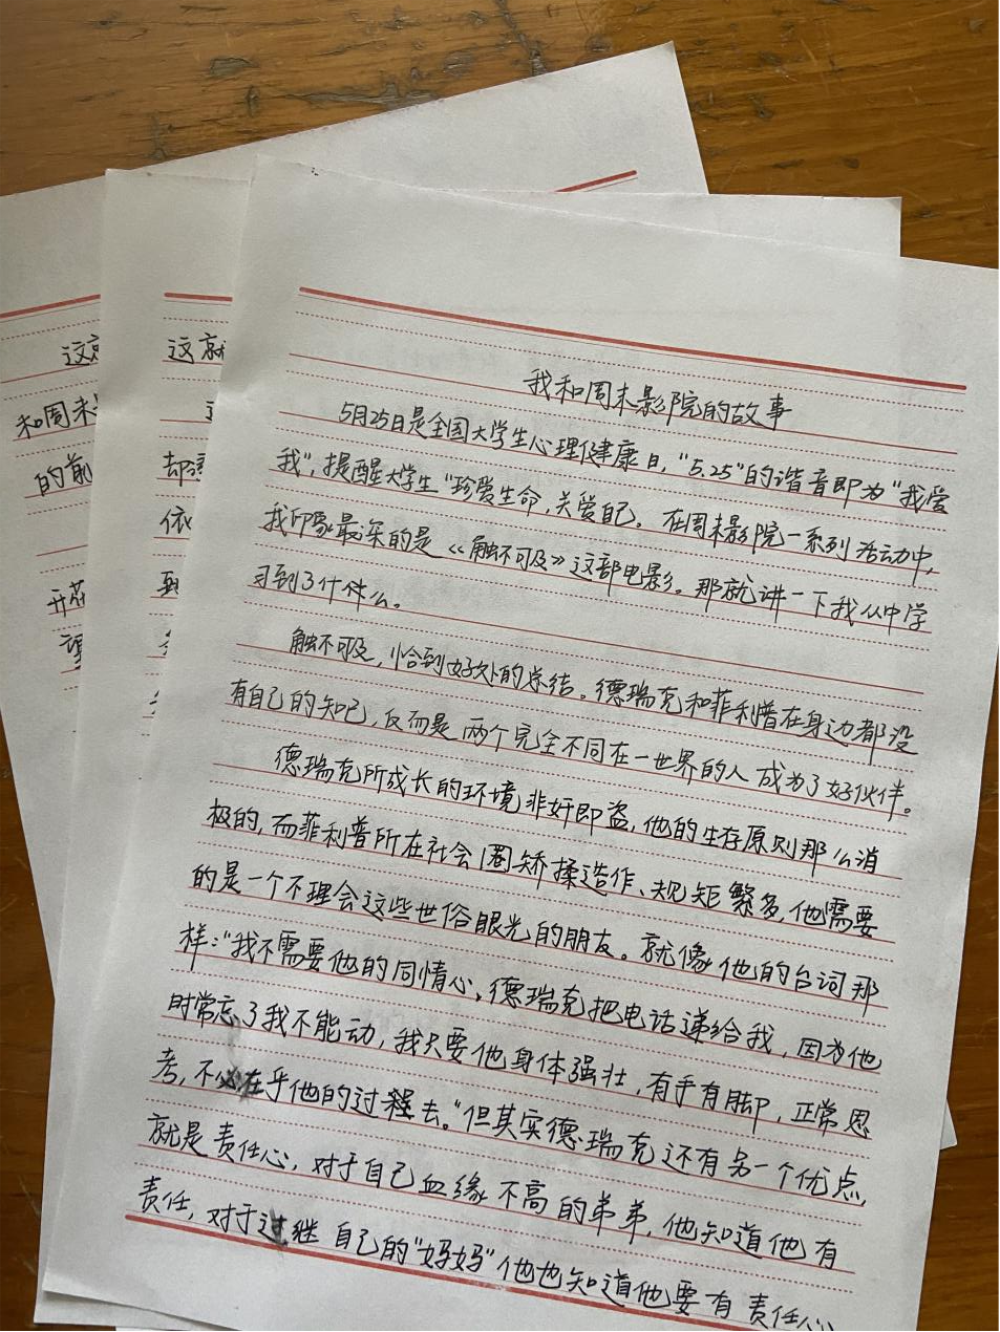 我和周末影院的故事
5月25日是全国大学生心理健康日，“5.25”的谐音即为“我爱
我”，提醒大学生“珍爱生命，关爱自己。在周末影院一系列活动中，
我印象最深的是《触不可及》这部电影。那就讲一下我从中学
习到了什件么。
触不可及，恰到好处的总结。德瑞克和菲利普在身边都没
有自己的知己，反而是两个完全不同在一世界的人成为了好伙伴。
德瑞克所成长的环境非奸即盗，他的生存原则那么消
极的，而菲利普所在社会圈矫揉造作、规矩繁多，他需要
的是一个不理会这些世俗眼光的朋友。就像他的台词那
样：“我不需要他的同情心，德瑞克把电话递给我，因为他
时常忘了我不能动，我只要他身体强壮，有手有脚，正常思
考，不必在乎他的过程去。”但其实德瑞克还有另一个优点，
就是责任心，对于自己血缘不高的弟弟，他知道他有
责任，对于过继自己的“妈妈”他也知道他要有责任心
这就
却
依
到
这
和周末
的前
开花
望